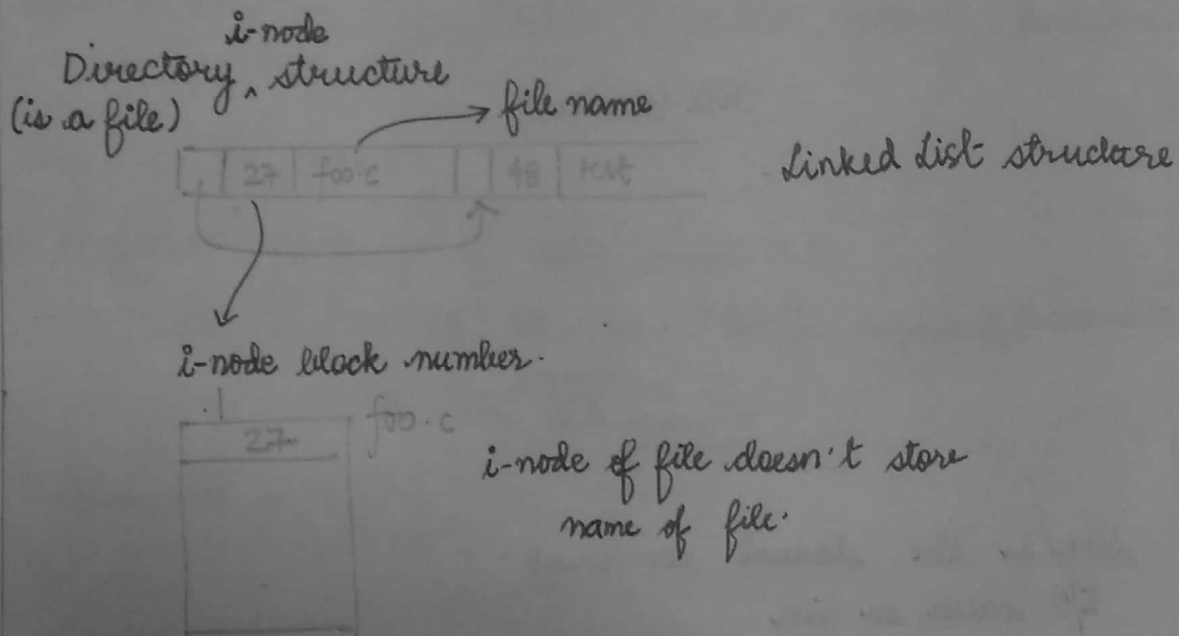 i-node
Directory ^ structure
(is a file)
file name
27 foo.c 48 test
Linked List structure
i-node block number.
27 foo.c
i-node of file doesn't store
name of file.